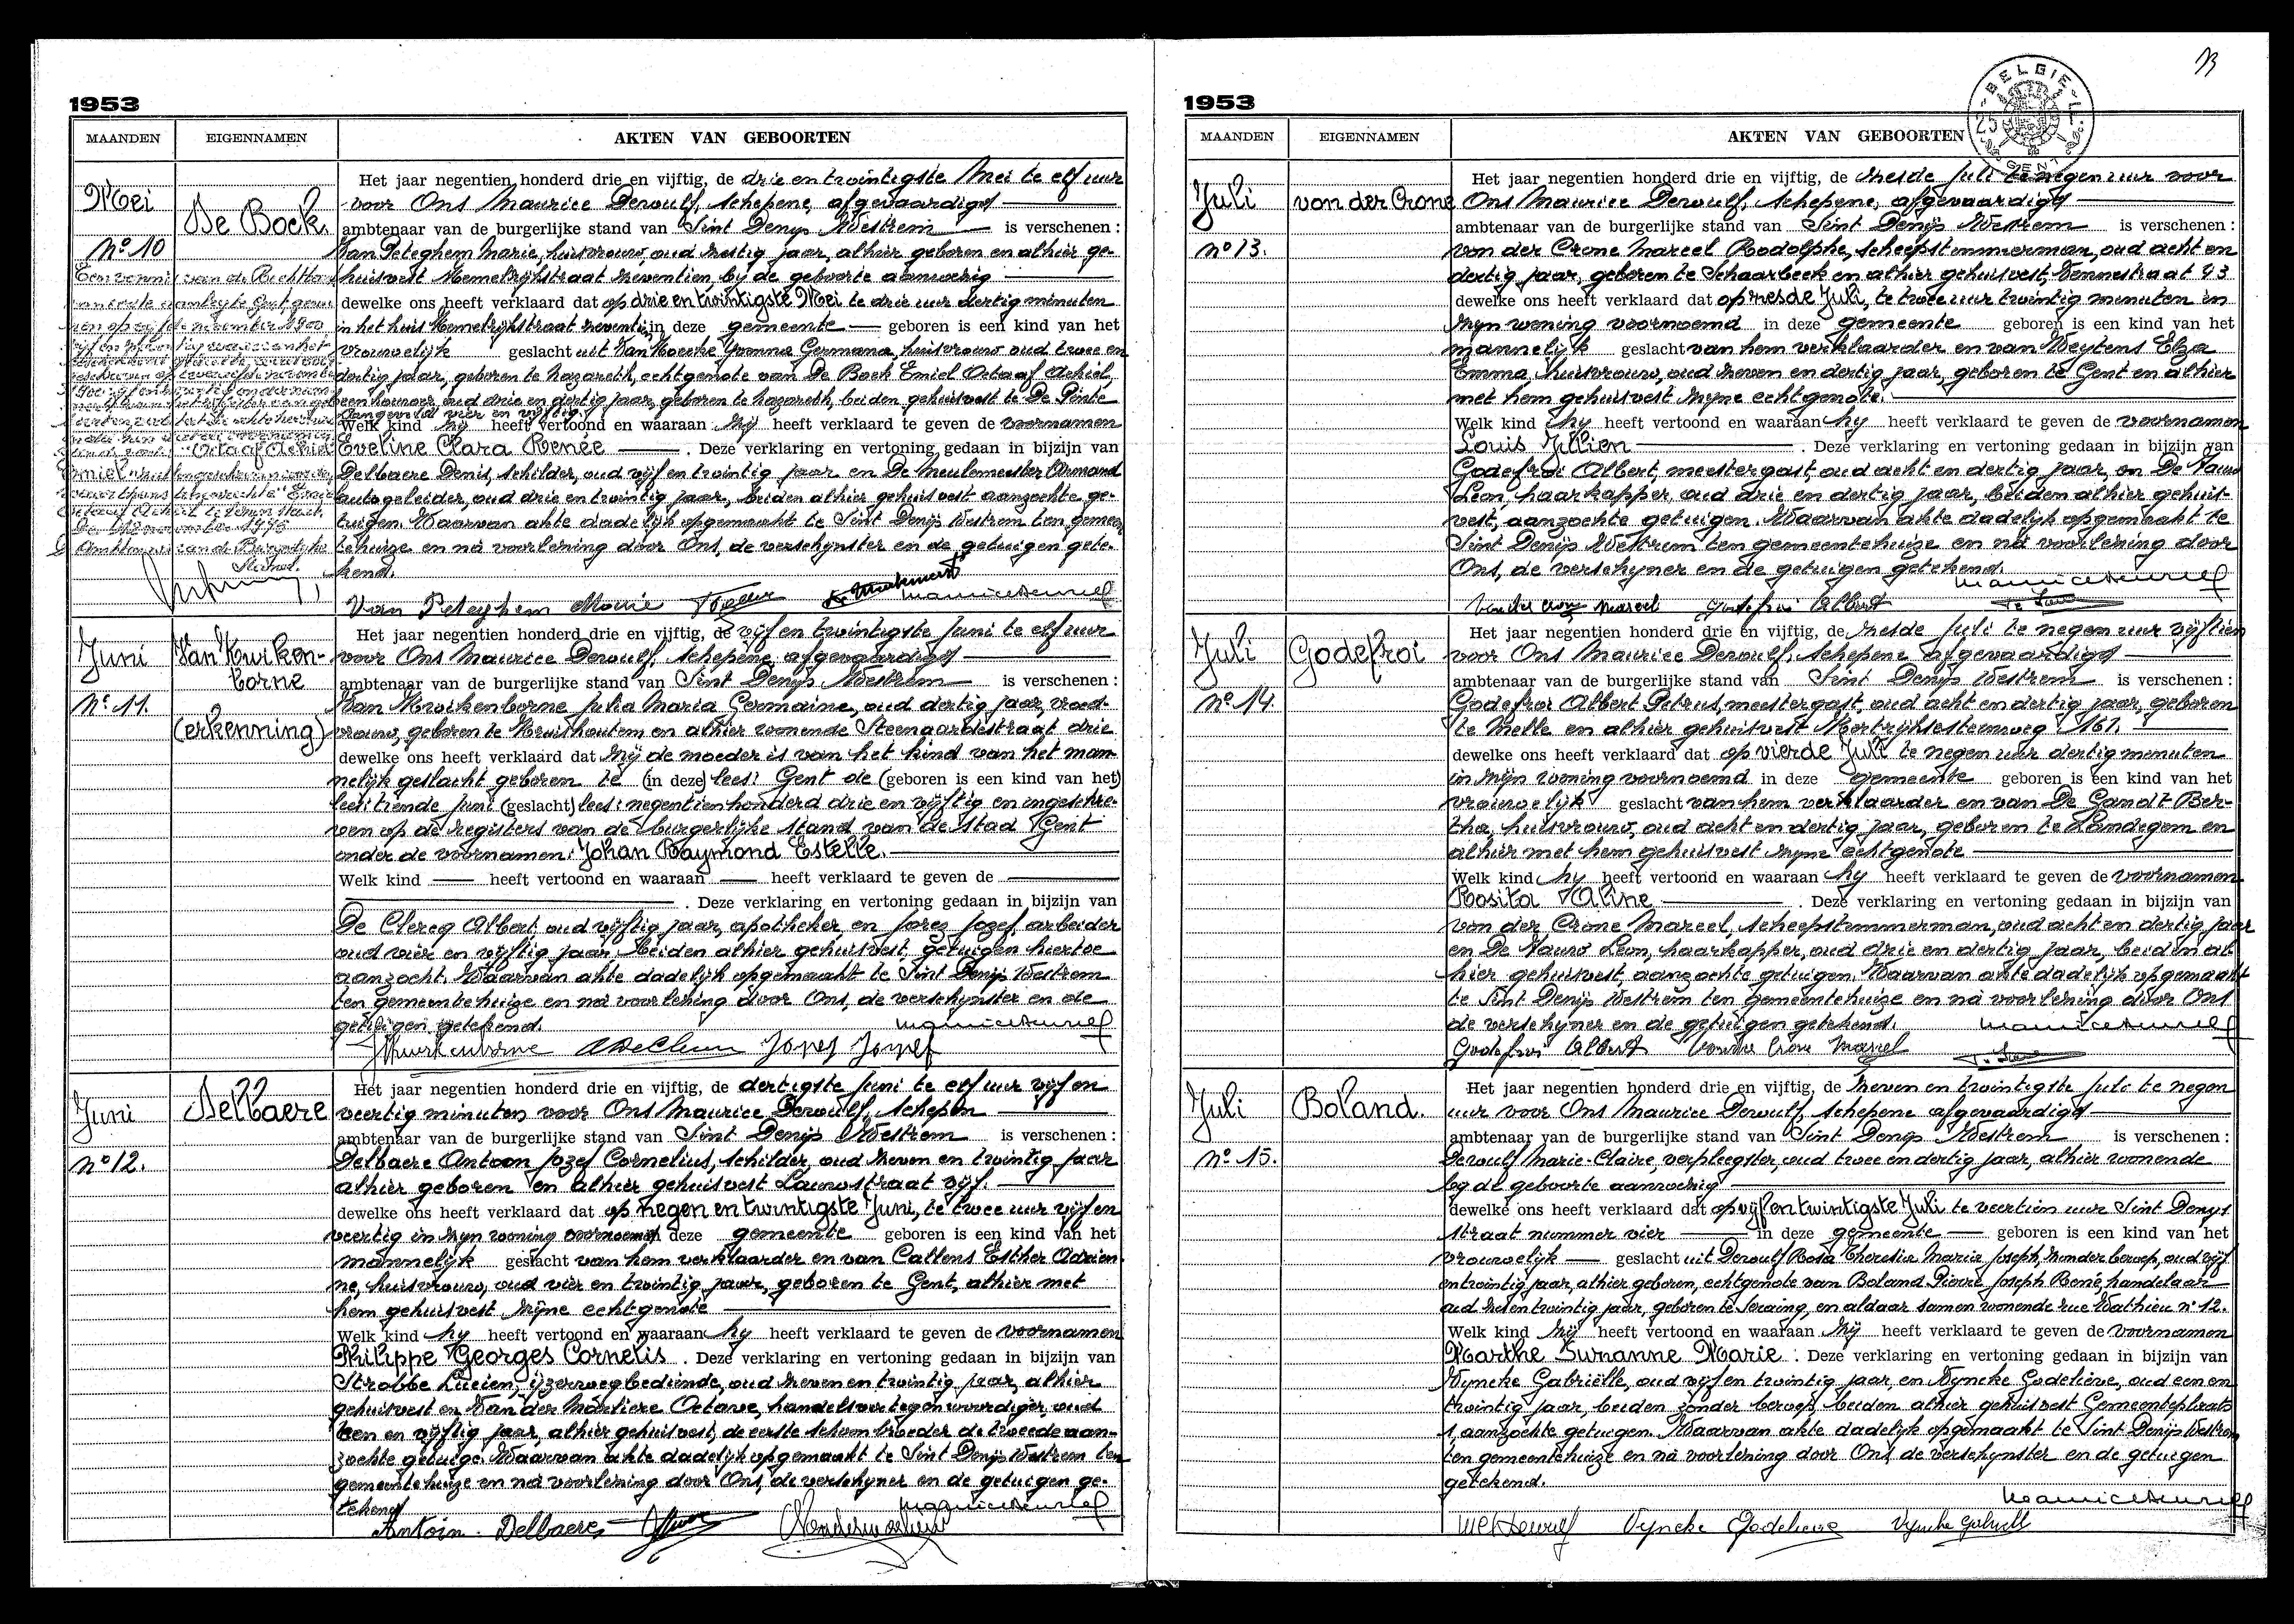 1953
MAANDEN EIGENNAMEN AKTEN VAN GEBOORTEN
Mei
De Bock.
No 10
Het jaar negentien honderd drie en vijftig, de drie en twintigste Mei te elf uur
voor Ons Maurice Dewulf, schepene, afgevaardigd
ambtenaar van de burgerlijke stand van Sint Denijs Westrem is verschenen :
Van Peteghem Marie, huisvrouw, oud zestig jaar, alhier geboren en alhier ge-
huisvest Hemelrijkstraat zeventien, bij de geboorte aanwezig
dewelke ons heeft verklaard dat op drie en twintigste Mei te drie uur dertig minuten
in het huis Hemelrijkstraat zeventien in deze gemeente geboren is een kind van het
vrouwelijk geslacht uit Van Hoecke Yvonna Germana, huisvrouw oud twee en
dertig jaar, geboren te Nazareth, echtgenote van De Bock Emiel Octaaf Achiel
beenhouwer, oud drie en dertig jaar, geboren te Nazareth, beiden gehuisvest te De Pinte
Langevelde vier en vijftig.
Welk kind zij heeft vertoond en waaraan zij heeft verklaard te geven de voornamen
Eveline Clara Renée . Deze verklaring en vertoning gedaan in bijzijn van
Delbaere Denis, schilder, oud vijf en twintig jaar en De Meulemeester Armand
autogeleider, oud drie en twintig jaar, beiden alhier gehuisvest aanzochte ge-
tuigen. Waarvan akte dadelijk opgemaakt te Sint Denijs Westrem ten gemeen
tehuize en na voorlezing door Ons, de verschijnster en de getuigen gete-
kend.
Van Peteghem Marie
Juni
Van Kwiken-
borne
No 11.
(erkenning)
Het jaar negentien honderd drie en vijftig, de vijf en twintigste Juni te elf uur
voor Ons Maurice Dewulf, schepene, afgevaardigd
ambtenaar van de burgerlijke stand van Sint Denijs Westrem is verschenen :
Van Kwikenborne Julia Maria Germaine, oud dertig jaar, vroed-
vrouw, geboren te Kruishoutem en alhier wonende Steenaardestraat drie
dewelke ons heeft verklaard dat zij de moeder is van het kind van het man-
nelijk geslacht geboren te (in deze) lees: Gent de (geboren is een kind van het)
lees: tiende Juni (geslacht) lees: negentienhonderd drie en vijftig en ingeschre-
ven op de registers van de burgerlijke stand van de stad Gent
onder de voornamen: Johan Raymond Estelle.
Welk kind heeft vertoond en waaraan heeft verklaard te geven de
. Deze verklaring en vertoning gedaan in bijzijn van
De Clercq Albert, oud vijftig jaar, apotheker en Jorez Jozef, arbeider
oud vier en vijftig jaar, beiden alhier gehuisvest, getuigen hiertoe
aanzocht. Waarvan akte dadelijk opgemaakt te Sint Denijs Westrem
ten gemeentehuize en na voorlezing door Ons, de verschijnster en de
getuigen getekend.
Juni
Delbaere
No 12.
Het jaar negentien honderd drie en vijftig, de dertigste Juni te elf uur vijf en
veertig minuten voor Ons Maurice Dewulf, schepen
ambtenaar van de burgerlijke stand van Sint Denijs Westrem is verschenen :
Delbaere Antoon Jozef Cornelius, schilder, oud zeven en twintig jaar
alhier geboren en alhier gehuisvest Lauwstraat vijf.
dewelke ons heeft verklaard dat op negen en twintigste Juni, te twee uur vijf en
veertig in mijn woning voornoemd in deze gemeente geboren is een kind van het
mannelijk geslacht van hem verklaarder en van Callens Esther Adrien-
ne, huisvrouw, oud vier en twintig jaar, geboren te Gent, alhier met
hem gehuisvest zijne echtgenote
Welk kind hij heeft vertoond en waaraan hij heeft verklaard te geven de voornamen
Philippe Georges Cornelis . Deze verklaring en vertoning gedaan in bijzijn van
Strobbe Lucien, ijzerwegbediende, oud zeven en twintig jaar, alhier
gehuisvest en Van der Marliere Octave, handelsvertegenwoordiger, oud
een en vijftig jaar, alhier gehuisvest, de eerste schoonbroeder de tweede aan-
zochte getuige. Waarvan akte dadelijk opgemaakt te Sint Denijs Westrem ten
gemeentehuize en na voorlezing door Ons, de verschijner en de getuigen ge-
tekend
Antoin. Delbaere
1953
BELGIE
GENT
MAANDEN EIGENNAMEN AKTEN VAN GEBOORTEN
Juli
von der Crone
No 13.
Het jaar negentien honderd drie en vijftig, de zesde Juli te negen uur voor
Ons Maurice Dewulf, schepene, afgevaardigd
ambtenaar van de burgerlijke stand van Sint Denijs Westrem is verschenen :
von der Crone Marcel Rodolphe, scheepstimmerman, oud acht en
dertig jaar, geboren te Schaarbeek en alhier gehuisvest, Vennestraat 93
dewelke ons heeft verklaard dat op zesde Juli, te twee uur twintig minuten in
zijn woning voornoemd in deze gemeente geboren is een kind van het
mannelijk geslacht van hem verklaarder en van Weytens Elza
Emma, huisvrouw, oud zeven en dertig jaar, geboren te Gent en alhier
met hem gehuisvest zijne echtgenote.
Welk kind hij heeft vertoond en waaraan hij heeft verklaard te geven de voornamen
Louis Julien . Deze verklaring en vertoning gedaan in bijzijn van
Godefroi Albert, meestergast, oud acht en dertig jaar, en De Vauw
Leon, haarkapper, oud drie en dertig jaar, beiden alhier gehuis-
vest, aanzochte getuigen. Waarvan akte dadelijk opgemaakt te
Sint Denijs Westrem ten gemeentehuize en na voorlezing door
Ons, de verschijner en de getuigen getekend.
Von der Crone Marcel Godefroi Albert
Juli
Godefroi
No 14.
Het jaar negentien honderd drie en vijftig, de zesde Juli te negen uur vijftien
voor Ons Maurice Dewulf, schepene afgevaardigd
ambtenaar van de burgerlijke stand van Sint Denijs Westrem is verschenen :
Godefroi Albert Petrus, meestergast, oud acht en dertig jaar, geboren
te Melle en alhier gehuisvest Kortrijksesteenweg 161.
dewelke ons heeft verklaard dat op vierde Juli te negen uur dertig minuten
in zijn woning voornoemd in deze gemeente geboren is een kind van het
vrouwelijk geslacht van hem verklaarder en van De Gandt Ber-
tha, huisvrouw, oud acht en dertig jaar, geboren te Landegem en
alhier met hem gehuisvest zijne echtgenote
Welk kind hij heeft vertoond en waaraan hij heeft verklaard te geven de voornamen
Rosita Aline . Deze verklaring en vertoning gedaan in bijzijn van
von der Crone Marcel, scheepstimmerman, oud acht en dertig jaar
en De Vauw Leon, haarkapper, oud drie en dertig jaar, beiden al-
hier gehuisvest, aanzochte getuigen. Waarvan akte dadelijk opgemaakt
te Sint Denijs Westrem ten gemeentehuize en na voorlezing door Ons
de verschijner en de getuigen getekend.
Godefroi Albert Von der Crone Marcel
Juli
Boland.
No 15.
Het jaar negentien honderd drie en vijftig, de zeven en twintigste Juli te negen
uur voor Ons Maurice Dewulf, schepene afgevaardigd
ambtenaar van de burgerlijke stand van Sint Denijs Westrem is verschenen :
Dewulf Marie-Claire, verpleegster, oud twee en dertig jaar, alhier wonende
bij de geboorte aanwezig
dewelke ons heeft verklaard dat op vijf en twintigste Juli te veertien uur Sint Denijs
straat nummer vier in deze gemeente geboren is een kind van het
vrouwelijk geslacht uit Dewulf Rosa Theresia Maria Joseph, zonder beroep, oud vijf
en twintig jaar, alhier geboren, echtgenote van Boland Pierre Joseph René, handelaar
oud zes en twintig jaar, geboren te Seraing, en aldaar samen wonende rue Wathieu no 12.
Welk kind zij heeft vertoond en waaraan zij heeft verklaard te geven de voornamen
Marthe Suzanne Marie . Deze verklaring en vertoning gedaan in bijzijn van
Vyncke Gabriëlle, oud vijf en twintig jaar, en Vyncke Godelieve, oud een en
twintig jaar, beiden zonder beroep, beiden alhier gehuisvest Gemeenteplaats
1, aanzochte getuigen. Waarvan akte dadelijk opgemaakt te Sint Denijs Westrem
ten gemeentehuize en na voorlezing door Ons, de verschijnster en de getuigen
getekend.
Vyncke Godelieve Vyncke Gabrielle